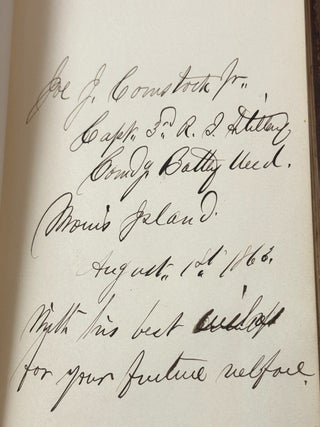 Joe J. Comstock Jr.
Capt. 3rd R. I. Artillery
Comdg Battery
Morris Island.
August 1st 1863.
With his best wishes
for your future welfare.